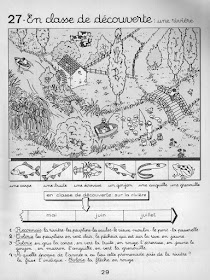 27 - En classe de découverte : une rivière
une carpe une truite une écrevisse un goujon une anguille une grenouille
en classe de découverte sur la rivière
mai juin juillet
1 Reconnais la rivière les peupliers les saules le vieux moulin le pont la passerelle
2 Colorie les peupliers en vert clair, le pêcheur qui est sur la rive en jaune
3 Colorie en gris la carpe, en vert la truite en rouge l'écrevisse en jaune le
goujon en marron l'anguille en vert la grenouille.
4 A quelle époque de l'année a eu lieu cette promenade près de la rivière?
la frise t'indique : Colorie la flèche en rouge.
29